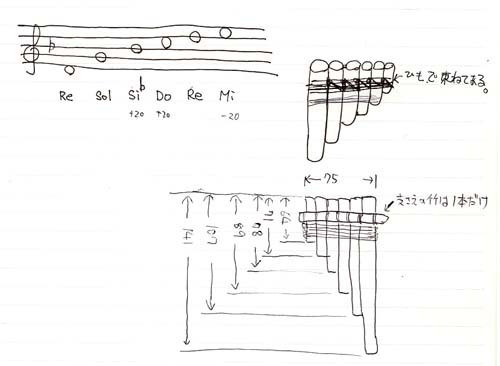 Re Sol Si♭ Do Re Mi
+20 +20 -20
ひもで束ねてある。
75
ささえの竹は1本だけ
141 107 89 71 64